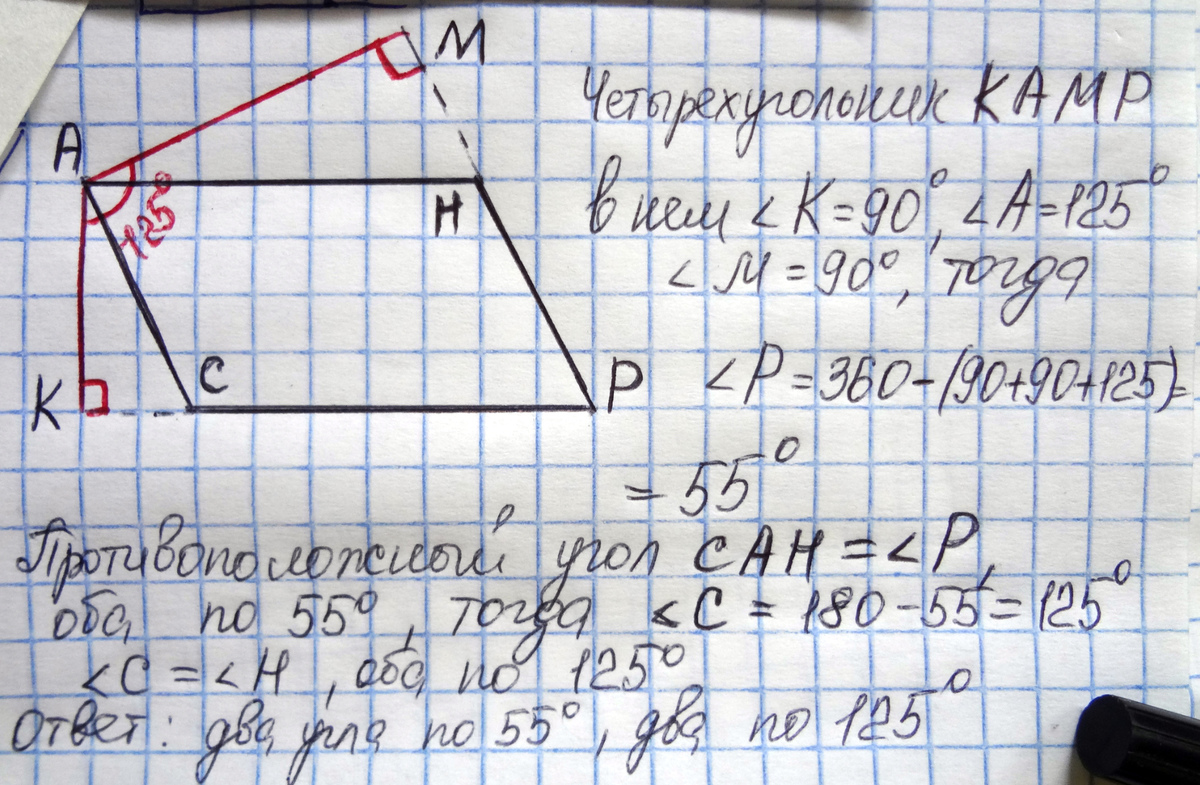 M
A
125°
H
K
C
P
Четырехугольник KAMP
в нем ∠K=90°, ∠A=125°
∠M=90°, тогда
∠P=360-(90+90+125)=
=55°
Противоположный угол CAH=∠P,
оба по 55°, тогда ∠C=180-55=125°
∠C=∠H, оба по 125°
Ответ: два угла по 55°, два по 125°